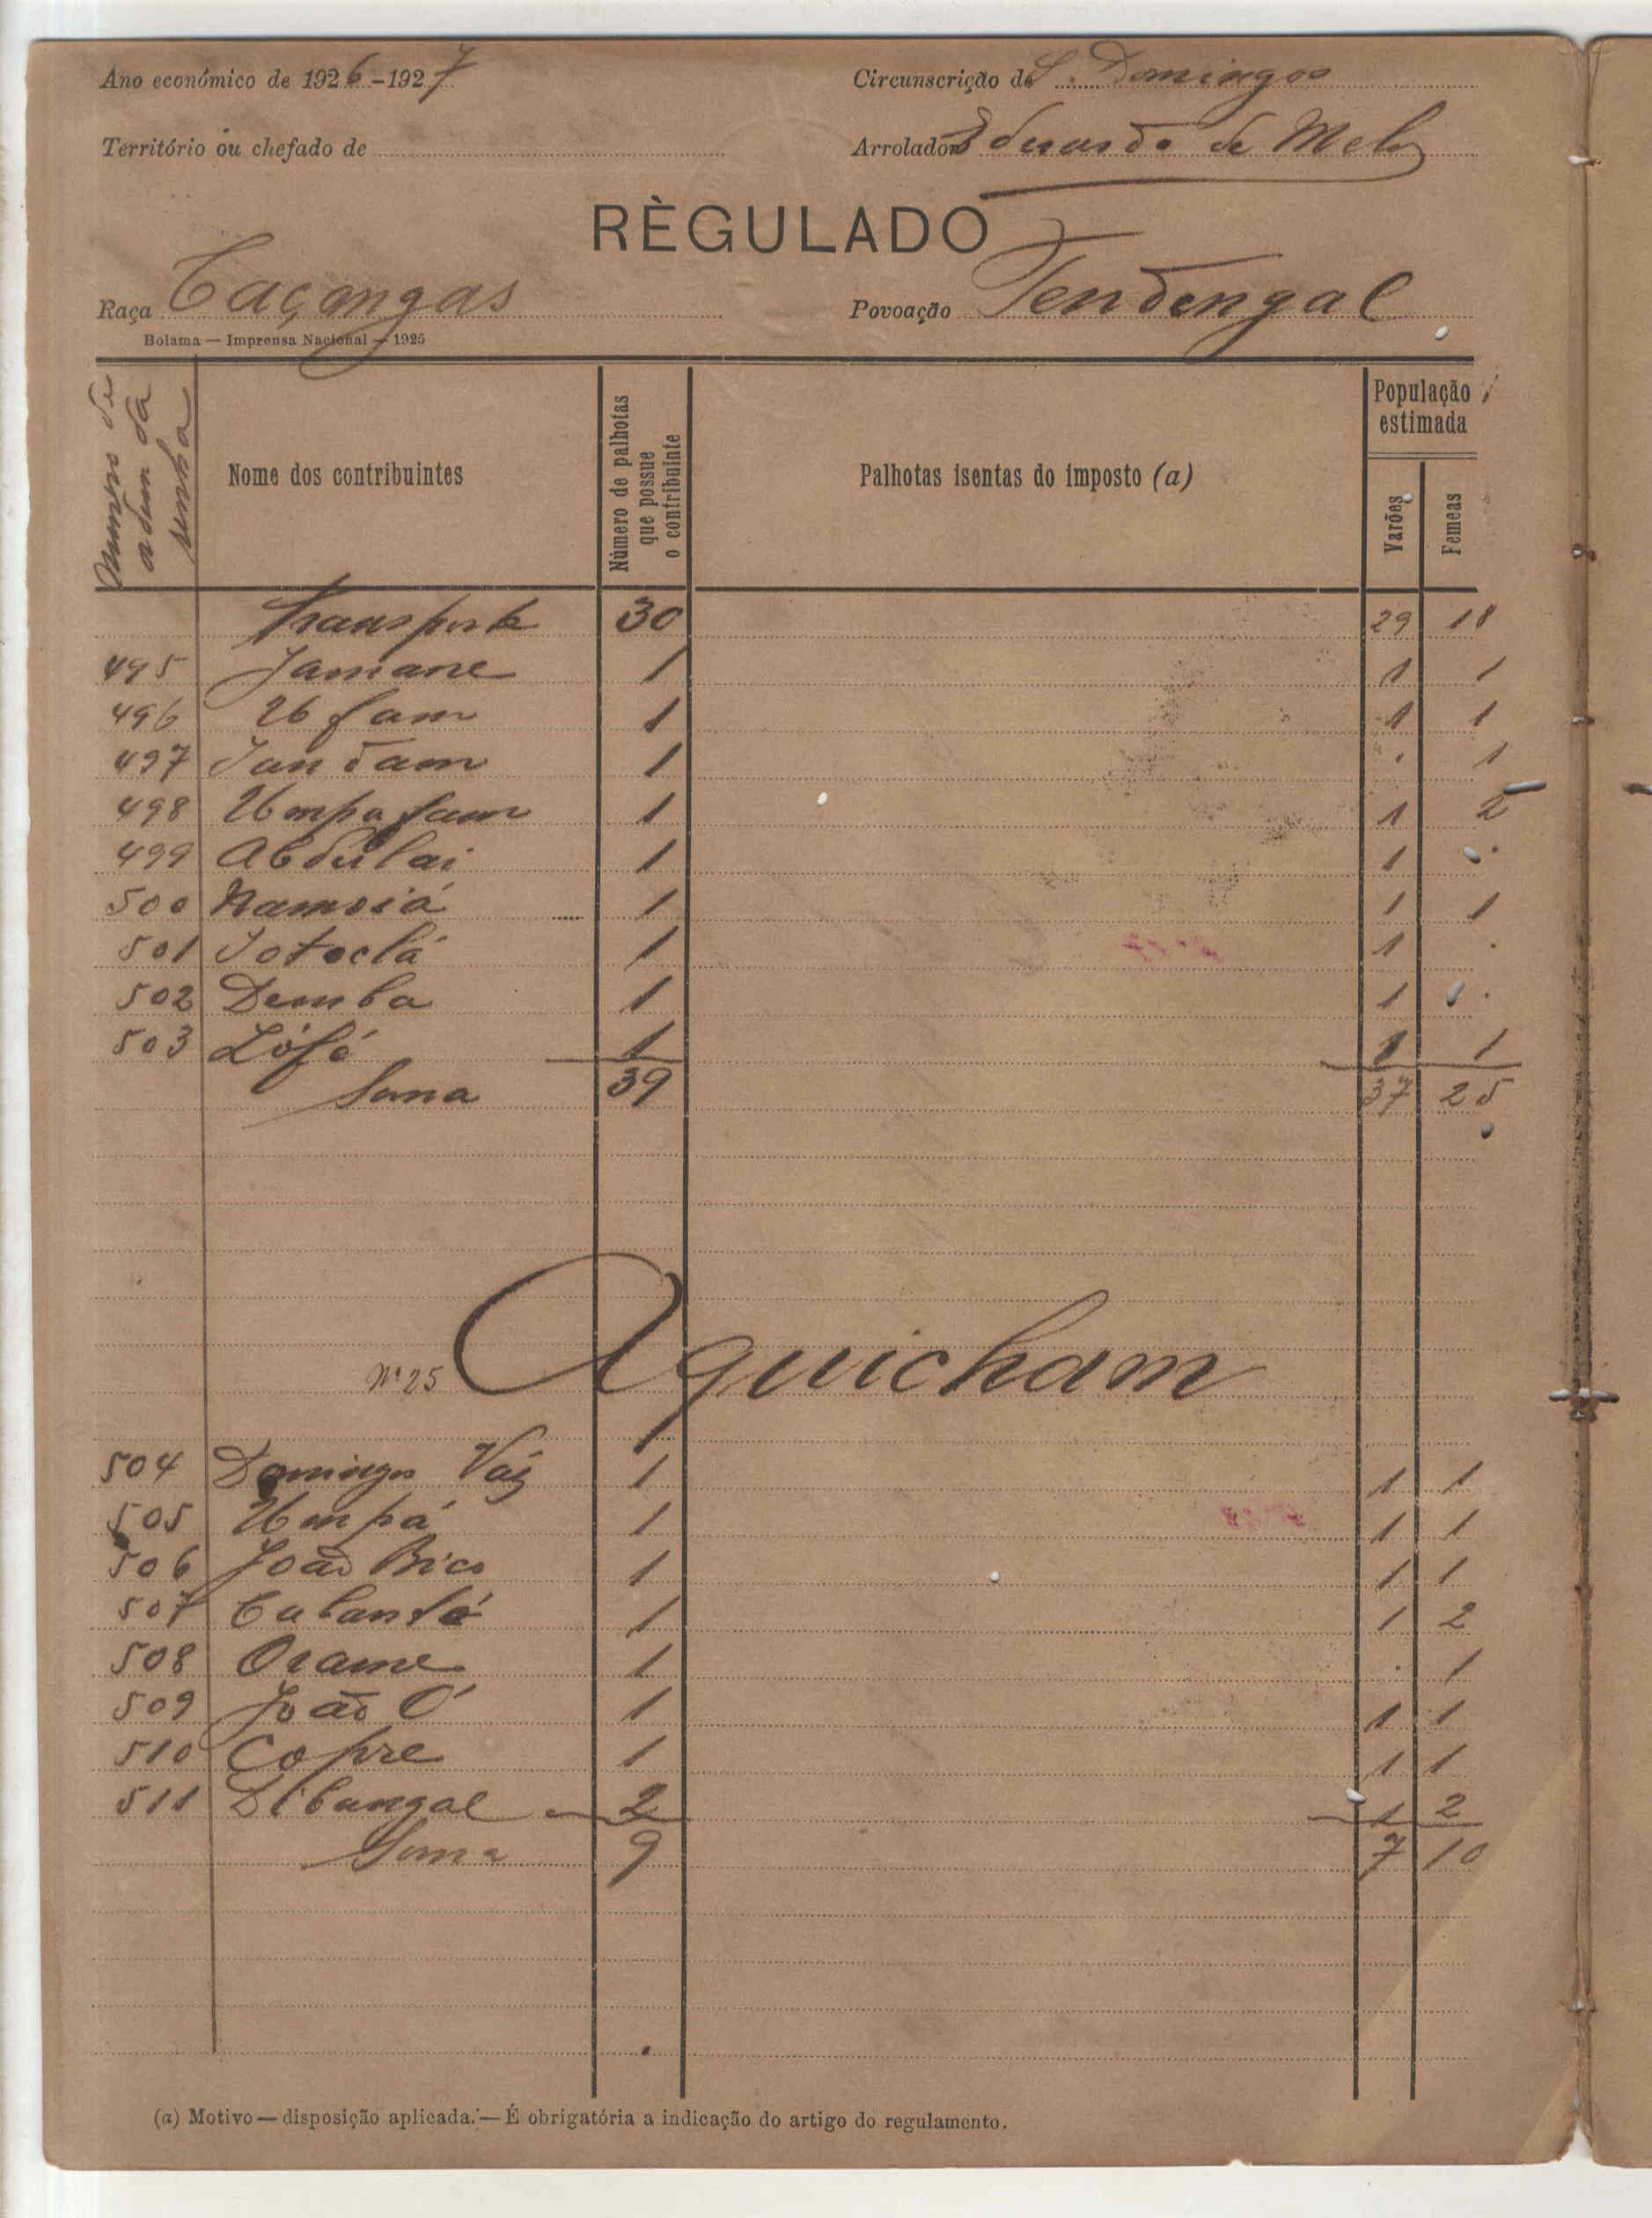 Ano económico de 1926-1927
Circunscrição de S. Domingos
Território ou chefado de
Arrolador Eduardo de Melo
RÈGULADO
Raça Caçangas
Povoação Tendengal
Bolama — Imprensa Nacional — 1925
Numero de ordem da senha
Nome dos contribuintes
Número de palhotas que possue o contribuinte
Palhotas isentas do imposto (a)
População estimada
Varões
Femeas
Transporte 30 29 18
495 Jamane 1 1 1
496 Ufam 1 1 1
497 Jandam 1 . 1
498 Umpafam 1 1 2
499 Abdulai 1 1 .
500 Namoiá 1 1 1
501 Jotoclá 1 1 .
502 Demba 1 1 .
503 Lófó 1 1 1
Soma 39 37 25
Nº 25 Aguicham
504 Domingos Váz 1 1 1
505 Umpá 1 1 1
506 João Bico 1 1 1
507 1 1 2
508 Orame 1 . 1
509 João Ó 1 1 1
510 Copre 1 1 1
511 Dibangal 2 1 2
Soma 9 7 10
(a) Motivo — disposição aplicada. — É obrigatória a indicação do artigo do regulamento.